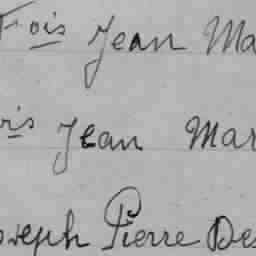 Fois Jean Ma
ois Jean Mar
oseph Pierre Des